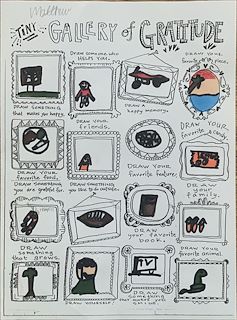 Matthew
TINY
GALLERY of GRATITUDE
DRAW SOMETHING
that makes you happy.
DRAW someone who
HELPS YOU.
DRAW
a happy
memory.
DRAW YOUR
favorite place.
DRAW
your favorite food.
DRAW
your
friends.
DRAW
YOUR
favorite feature.
DRAW YOUR
favorite
DRAW SOMETHING
you are grateful for.
DRAW SOMETHING
you like to do outside.
DRAW
your favorite
book.
DRAW
your
family.
DRAW
something
that grows.
DRAW YOURSELF.
DRAW
something
that
DRAW YOUR
favorite animal.